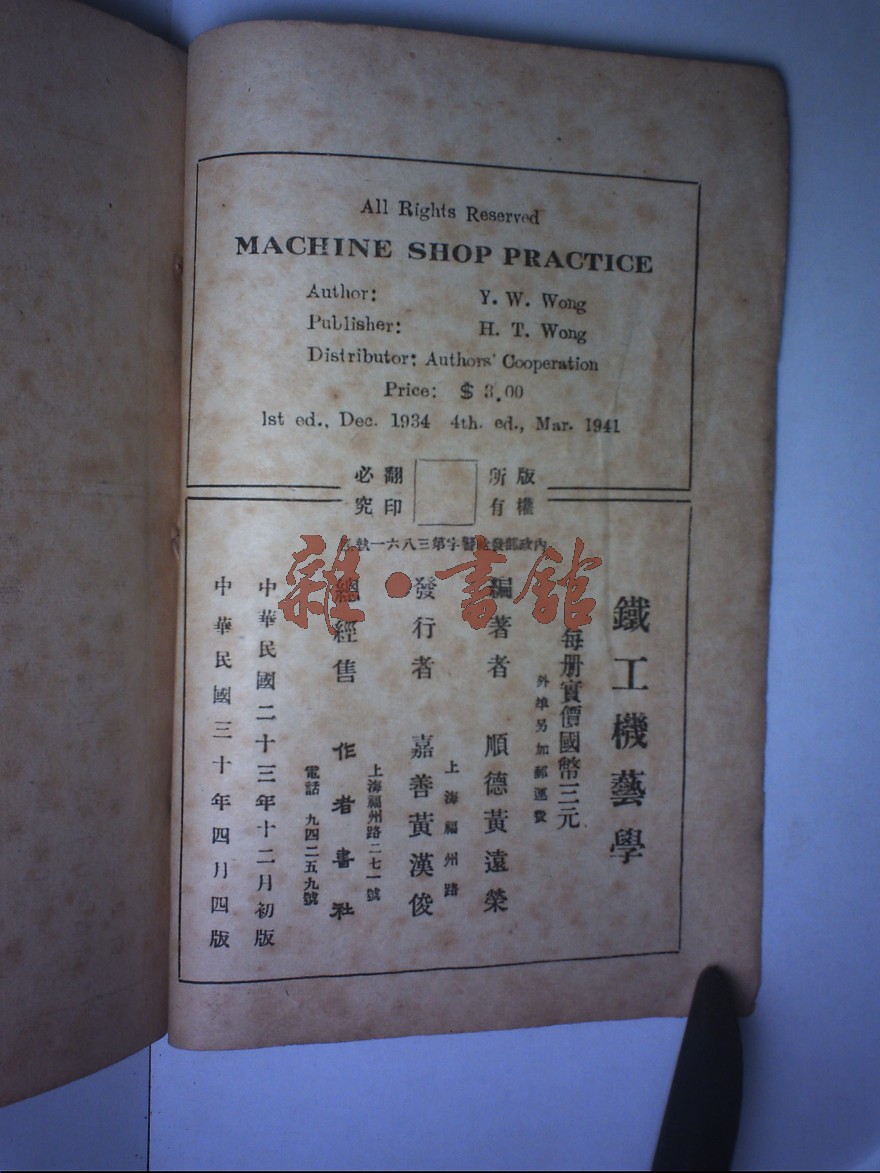 All Rights Reserved
MACHINE SHOP PRACTICE
Author: Y. W. Wong
Publisher: H. T. Wong
Distributor: Authors' Cooperation
Price: $ 3.00
1st ed., Dec. 1934 4th. ed., Mar. 1941
版權所有
翻印必究
內政部發警字第三八六一執
雜·書館
鐵工機藝學
每册實價國幣三元
外埠另加郵運費
編著者 順德黃遠榮
上海福州路
發行者 嘉善黃漢俊
上海福州路二七一號
總經售 作者書社
電話 九四二五九號
中華民國二十三年十二月初版
中華民國三十年四月四版